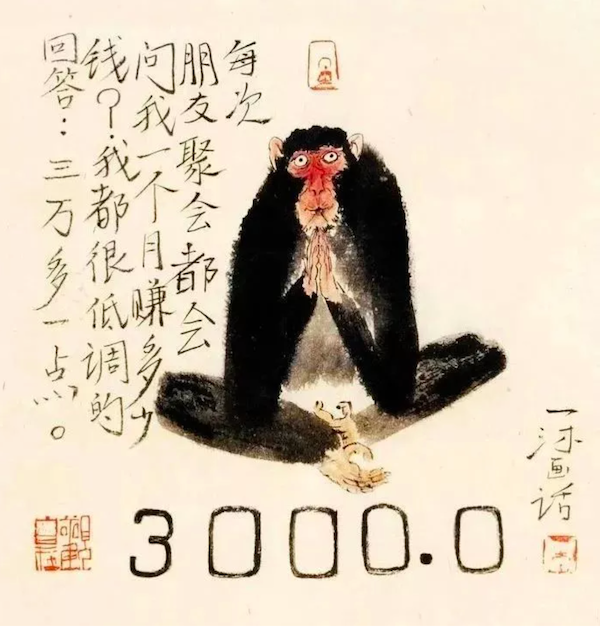 每次
朋友聚会都会
问我一个月赚多少
钱？我都很低调的
回答：三万多一点。
3000.0
画话